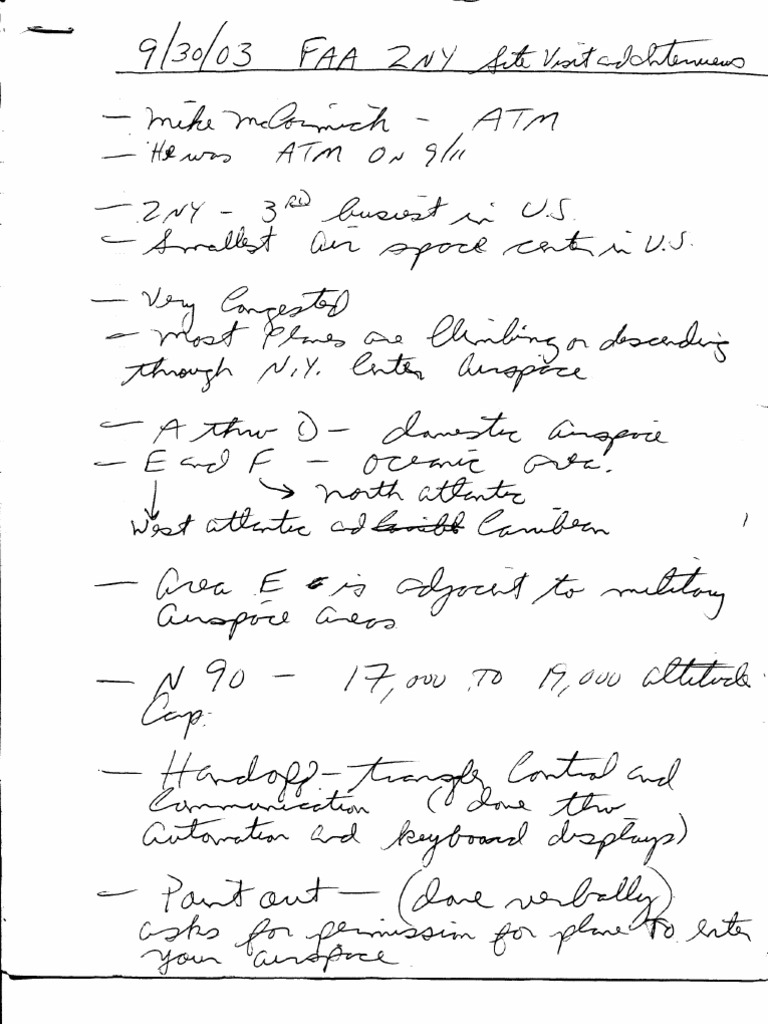 9/30/03 FAA ZNY Site Visit and Interviews
- Mike McCormick - ATM
- He was ATM on 9/11
- ZNY - 3RD busiest in U.S.
- Smallest air space center in U.S.
- Very Congested
- Most Planes are Climbing or descending
through N.Y. Center Airspace
- A thru D - domestic airspace
- E and F - oceanic area.
→ north atlantic
West atlantic and Carribean
- Area E is adjacent to military
airspace areas
- N90 - 17,000 TO 19,000 altitude
Cap.
- Handoff - transfer Control and
Communication (done thru
automation and keyboard displays)
- Point out - (done verbally)
asks for permission for plane to enter
your airspace